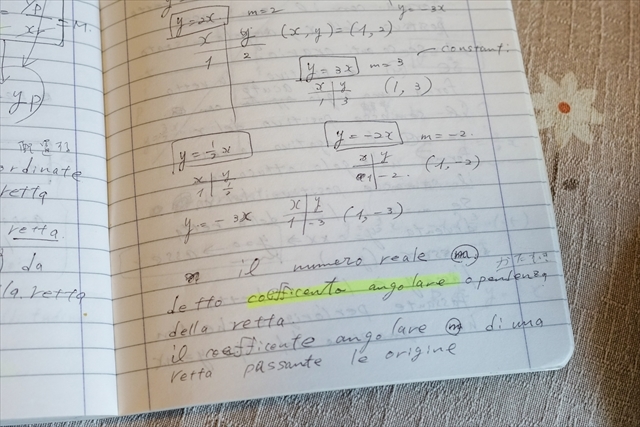 = M.
yp
ordinate
retta
retta.
da
la retta
y = 2x m = 2 y = -3x
x y (x, y) = (1, 2)
1 2
constant:
y = 3x m = 3
x y
1 3 (1, 3)
y = 1/2 x
x y
1 1/2
y = -2x m = -2.
x y
1 -2. (1, -2)
y = -3x
x y
1 -3 (1, -3)
il numero reale m
detto coefficento angolare o pendenza
della retta
il coefficente angolare m di una
retto passante le origine